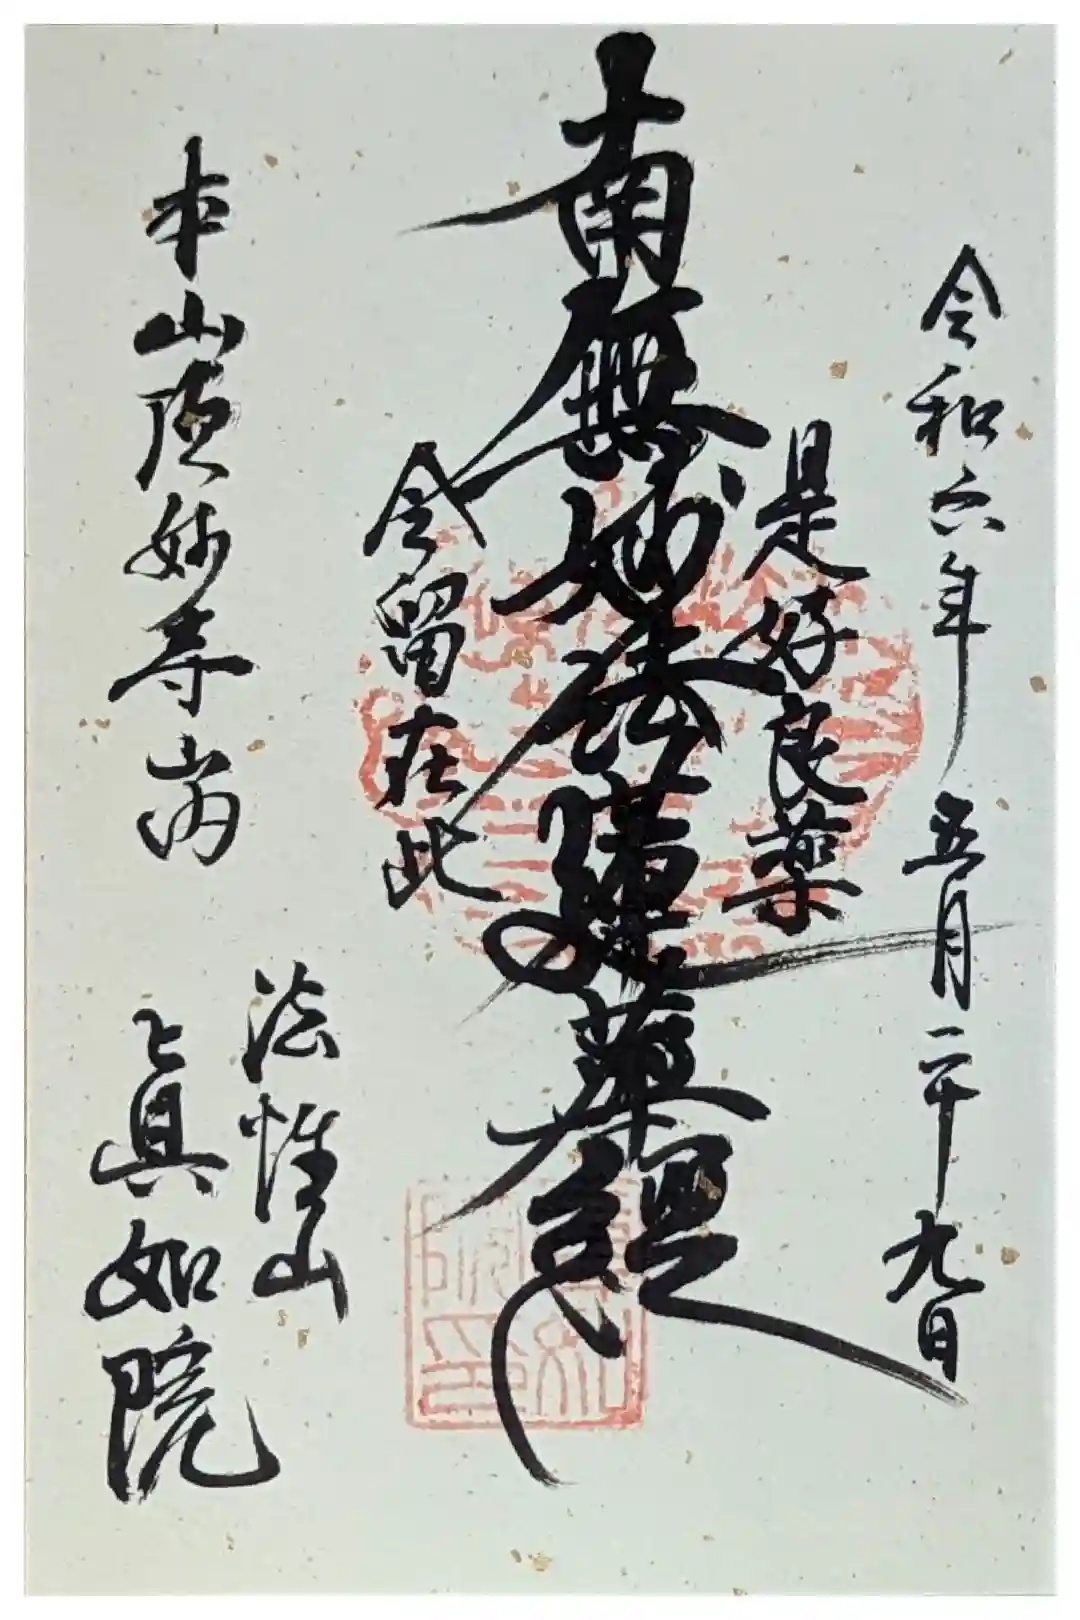 令和六年 五月二十九日
是好良薬
南無妙法蓮華經
今留在此
法惟山
本山頂妙寺山内 眞如院